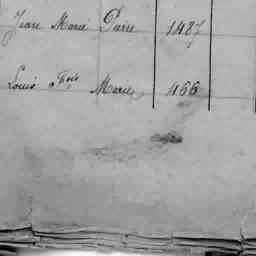 Jean Marie Pavie 1487
Louis Fçois Marie 466